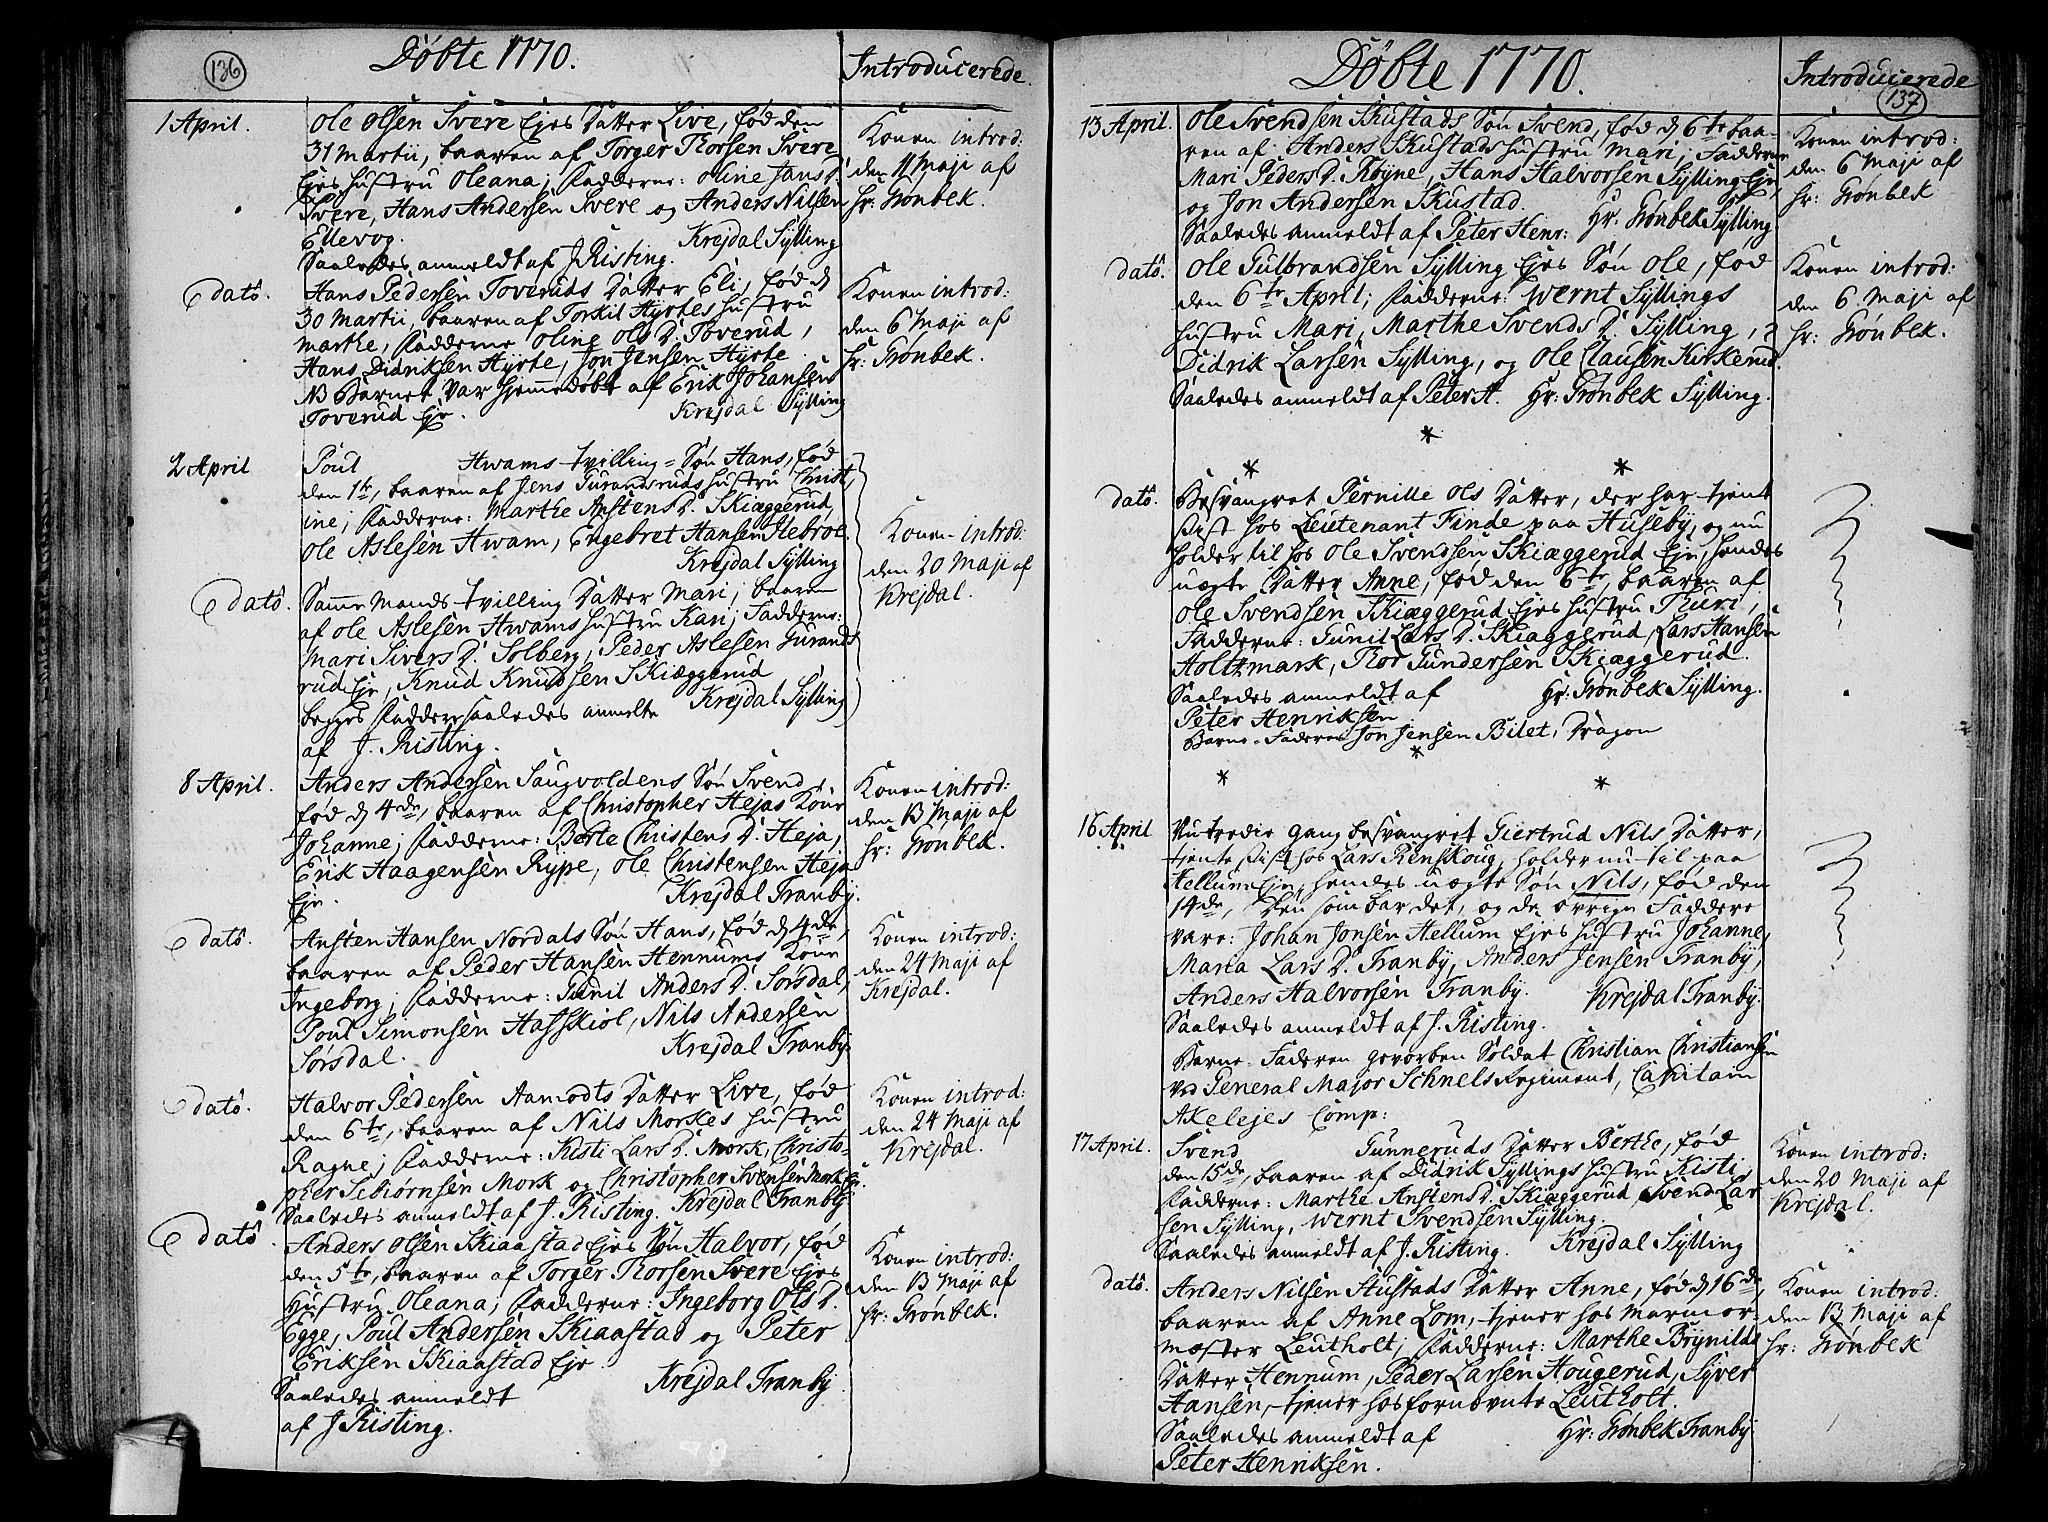 136
Døbte 1770.
Introducerede.
1 April.
Ole Olsen Svere Ejes Datter Live, fød den
31 Martii, baaren af Torger Thorsen Svere
Ejes Hustru Oleana; Fadderne: Oline Jans D.
Svere, Hans Andersen Svere og Anders Nilsen
Ellevog. Krejdal Sylling
Saaledes anmeldt af J. Risting.
Konen introd:
den 11 Maji af
Hr: Grønbek.
dato.
Hans Pedersen Toveruds Datter Eli, fød d
30 Martii, baaren af Torkil Hyrtes Hustru
Marthe, Fadderne Oline Ols D. Toverud,
Hans Didriksen Hyrte, Jon Jensen Hyrte
NB Barnet var hjemmedøbt af Erik Johansen
Toverud Eje. Krejdal Sylling
Konen introd:
den 6 Maji af
Hr: Grønbek.
2 April
Poul Hwams tvilling-Søn Hans, fød
den 1te, baaren af Jens Gurandsruds Hustru Christ,
ine; Fadderne: Marthe Anstens D. Skiæggerud,
Ole Aslesen Hwam, Engebret Hansen Ilebroe.
Krejdal Sylling
Konen introd:
den 20 Maji af
Krejdal.
dato.
Samme Mands tvilling Datter Mari; baaren
af Ole Aslesen Hwams Hustru Kari; Fadderne:
Mari Sivers D. Solberg, Peder Aslesen Gurands
rud Eje, Knud Knudsen Skiæggerud
begges Faddere saaledes anmelte Krejdal Sylling
af J. Risting.
8 April.
Anders Andersen Saugvoldens Søn Svend,
fød d 4de, baaren af Christopher Hejas Kone
Johanne; Fadderne: Berte Christens D. Heja,
Erik Haagensen Rype, Ole Christensen Heja
Eje. Krejdal Tranby.
Konen introd:
den 13 Maji af
Hr: Grønbek.
dato.
Ansten Hansen Nordals Søn Hans, fød d 4de,
baaren af Peder Hansen Hennums Kone
Ingeborg; Fadderne: Gunil Anders D. Sørsdal,
Poul Simonsen Hasskiol, Nils Andersen
Sørsdal. Krejdal Tranby.
Konen introd:
den 24 Maji af
Krejdal.
dato.
Halvor Pedersen Aamodts Datter Live, fød
den 6te, baaren af Nils Morkes Hustru
Ragne; Fadderne: Kisti Lars D. Mork, Christo-
pher Sebiørnsen Mork og Christopher Svensen Mork Ej.
Saaledes anmeldt af J. Risting. Krejdal Tranby
Konen introd:
den 24 Maji af
Krejdal.
dato.
Anders Olsen Skiaastad Ejes Søn Halvor, fød
den 5te, baaren af Torger Thorsen Svere Ejes
Hustru Oleana; Fadderne: Ingeborg Ols D.
Egge, Poul Andersen Skiaastad og Peter
Eriksen Skiaastad Eje
Saaledes anmeldt Krejdal Tranby
af J. Risting.
Konen introd:
den 13 Maji af
Hr: Grønbek.
Døbte 1770.
Introducerede
137
13 April.
Ole Svendsen Skustads Søn Svend, fød d 6te baa-
ren af Anders Skustads Hustru Mari; Fadderne
Mari Peders D. Røyne, Hans Halvorsen Sylling Eje,
og Jon Andersen Skustad. Hr. Grønbek Sylling.
Saaledes anmeldt af Peter Henr:
Konen introd:
den 6 Maji af
Hr: Grønbek
dato.
Ole Gulbrandsen Sylling Ejes Søn Ole, fød
den 6te April; Fadderne: Wernt Syllings
Hustru Mari, Marthe Svends D. Sylling,
Didrik Larsen Sylling, og Ole Clausen Kirkerud.
Saaledes anmeldt af Peter H. Hr: Grønbek Sylling.
Konen introd:
den 6 Maji af
Hr: Grønbek.
dato.
Besvangret Pernille Ols Datter, der har tjent
sist hos Leutenant Finde paa Huseby, og nu
holder til hos Ole Svendsen Skiæggerud Eje, hendes
uægte Datter Anne, fød den 6te, baaren af
Ole Svendsen Skiæggerud Ejes Hustru Thuri,
Fadderne: Gunil Lars D. Skiæggerud, Lars Hansen
Holtzmark, Thor Gundersen Skiæggerud.
Saaledes anmeldt af Hr: Grønbek Sylling.
Peter Henriksen
Barne-Faderen Jon Jensen Bilet, Dragon
16 April
Nu tredie gang besvangret Giertrud Nils Datter,
tjente sist hos Lars Renskoug, holder nu til paa
Hellum Eje, hendes uægte Søn Nils, fød den
14de, Den som bar det, og de øvrige Faddere
vare: Johan Jonsen Hellum Ejes Hustru Johanne,
Maria Lars D. Tranby, Anders Jensen Tranby,
Anders Halvorsen Tranby. Krejdal Tranby.
Saaledes anmeldt af J. Risting.
Barne-Faderen geworben Soldat Christian Christiansen
ved General Major Schnels Regiment, Capitain
Akelejes Comp:
17 April.
Svend Gunneruds Datter Berthe, fød
den 15de, baaren af Didrik Syllings Hustru Kisti,
Fadderne: Marthe Anstens D. Skiæggerud, Svend Lar
sen Sylling, Wernt Svendsen Sylling
Saaledes anmeldt af J. Risting. Krejdal Sylling
Konen introd:
den 20 Maji af
Krejdal.
dato.
Anders Nilsen Skustads Datter Anne, fød d 16de,
baaren af Anne Lom, tjener hos Marmor-
mester Leutholt; Fadderne: Marthe Brynilds
Datter Hennum, Peder Larsen Hougerud, Syver
Hansen, tjener hos fornevnte Leutholt.
Saaledes anmeldt af Hr: Grønbek Tranby
Peter Henriksen.
Konen introd:
den 13 Maji af
Hr: Grønbek